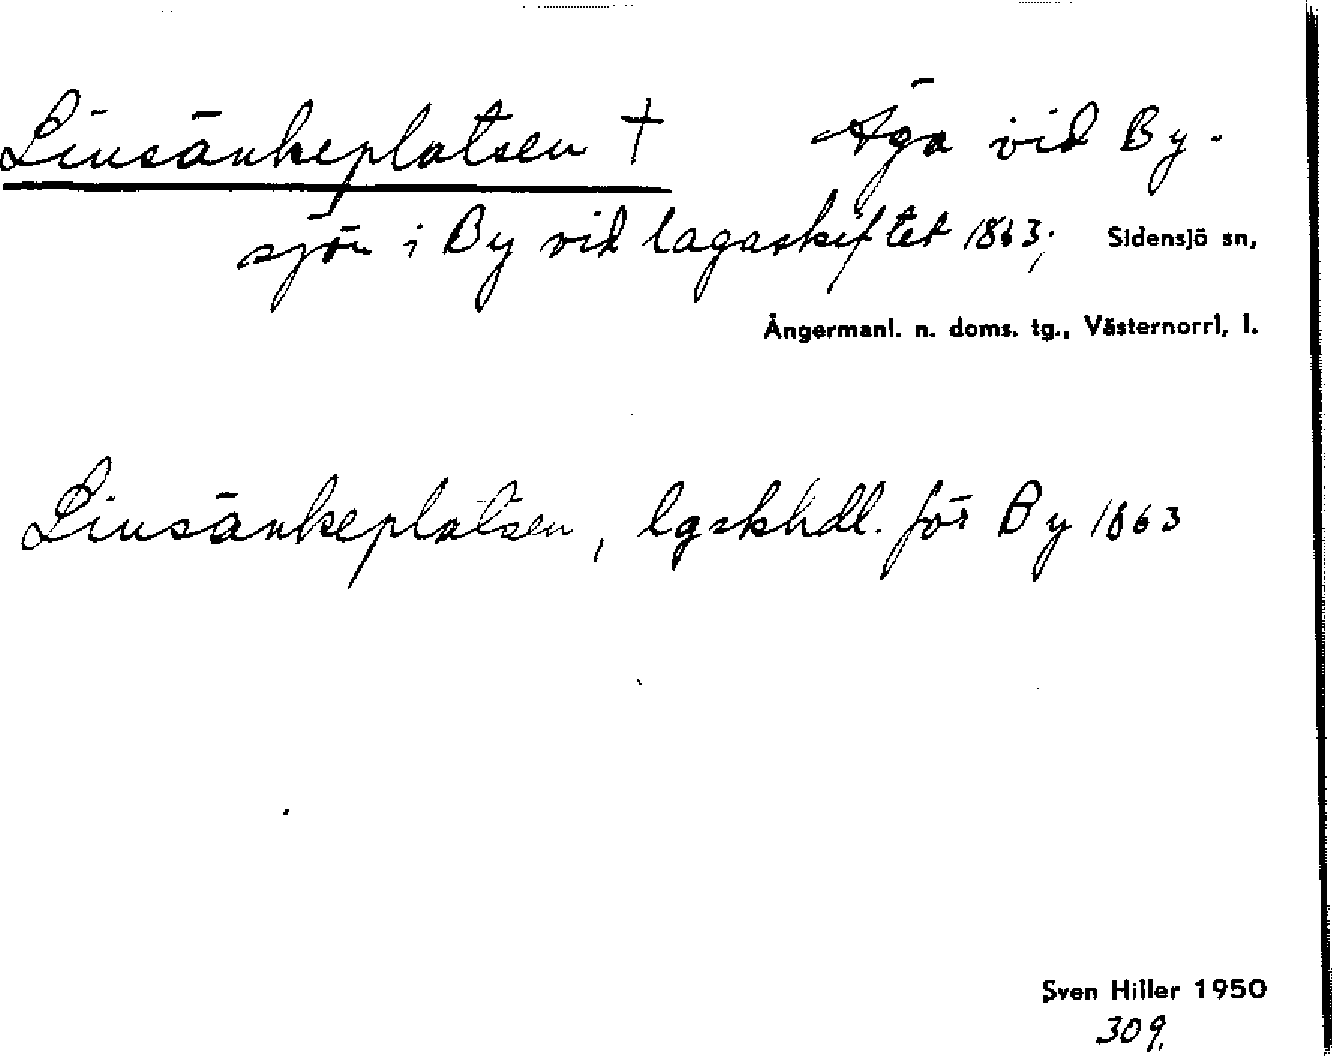 Linsänkeplatsen † Äga vid By-
sjön i By vid lagaskiftet 1863; Sidensjö sn,
Ångermanl. n. doms. tg., Västernorrl, l.
Linsänkeplatsen, lgskhdl. för By 1863
Sven Hiller 1950
309.